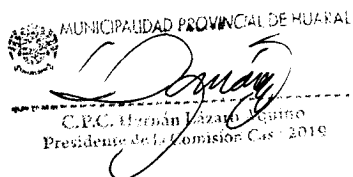 MUNICIPALIDAD PROVINCIAL DE HUARAL
C.P.C. Hernán Lázaro Aquino
Presidente de la Comisión Cas - 2019